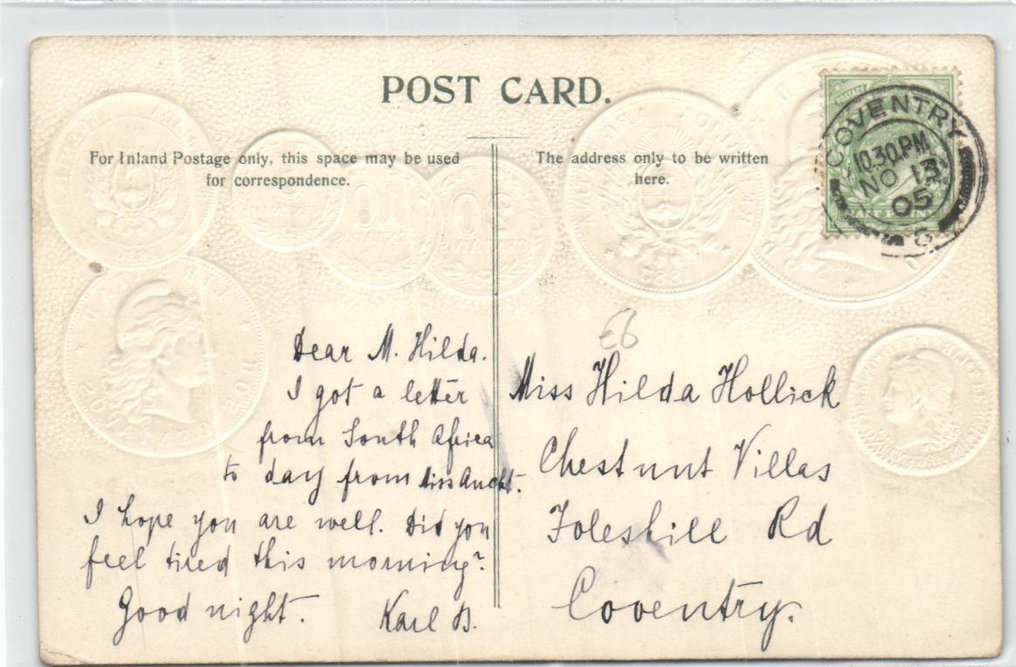 POST CARD.
For Inland Postage only, this space may be used
for correspondence.
The address only to be written
here.
COVENTRY
10.30.PM
NO 13
05
HALF PENNY
£6
Dear M. Hilda.
I got a letter
from South Africa
to day from Miss
I hope you are well. Did you
feel tired this morning?
Good night. Karl B.
Miss Hilda Hollick
Chestnut Villas
Foleshill Rd
Coventry.